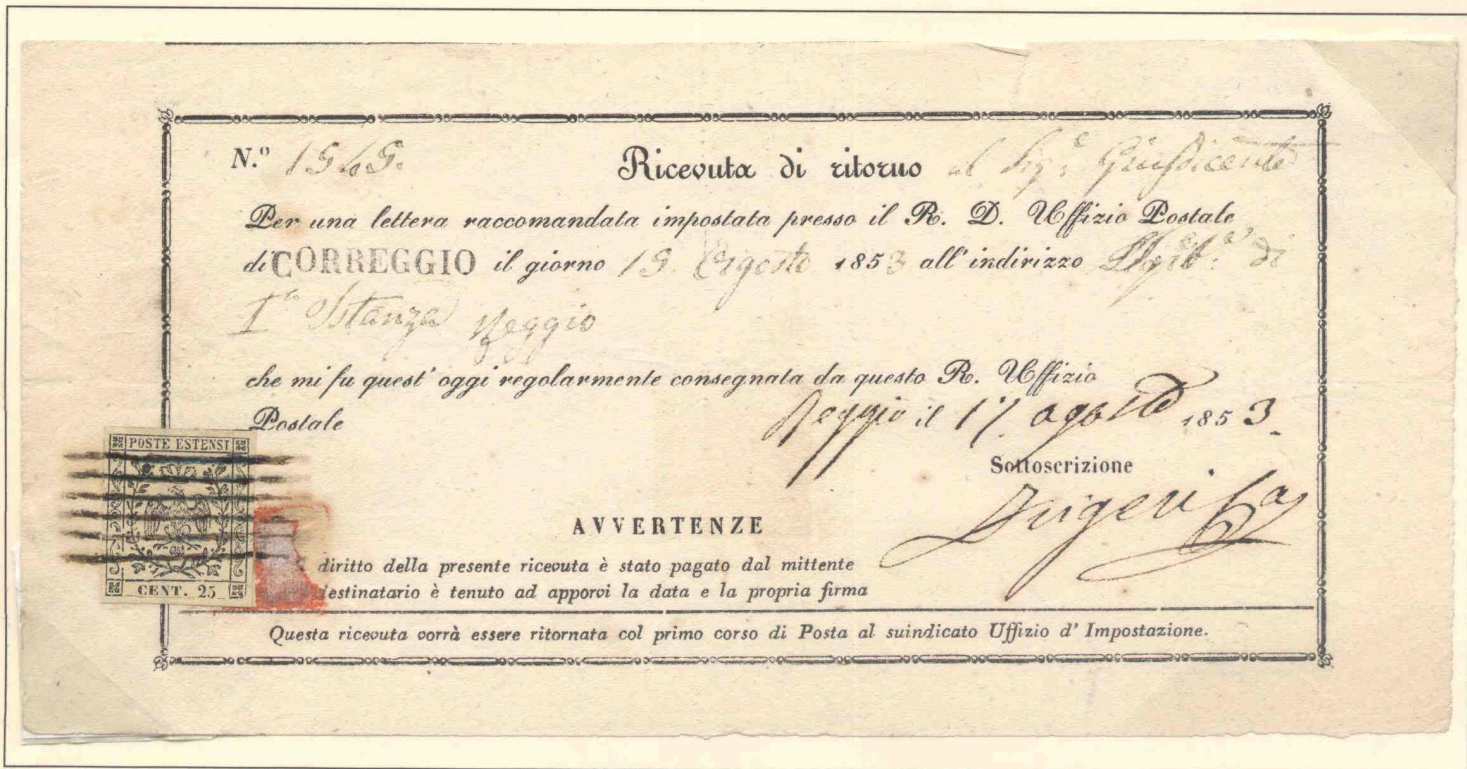 N.º Ricevuta di ritorno al Sigr.
Per una lettera raccomandata impostata presso il R. D. Uffizio Postale
di CORREGGIO il giorno 15 Agosto 1853 all' indirizzo di
Iª Istanza Reggio
che mi fu quest' oggi regolarmente consegnata da questo R. Uffizio
Postale
Reggio il 17 agosto 1853
Sottoscrizione
POSTE ESTENSI
CENT. 25
AVVERTENZE
diritto della presente ricevuta è stato pagato dal mittente
destinatario è tenuto ad apporvi la data e la propria firma
Questa ricevuta vorrà essere ritornata col primo corso di Posta al suindicato Uffizio d' Impostazione.